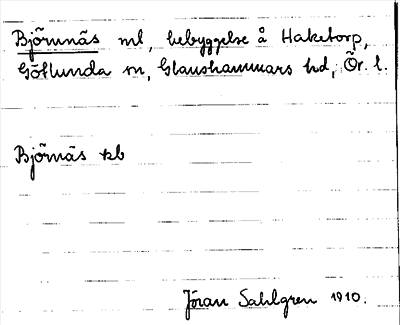 Björnnäs ml, bebyggelse å Haketorp,
Götlunda sn, Glanshammars hd, Ör. l.
Björnäs skb
Jöran Sahlgren 1910.